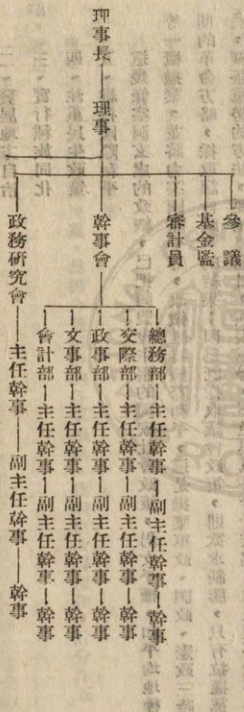 參議
基金監
審計員
理事長 理事
幹事會
總務部 主任幹事 副主任幹事 幹事
交際部 主任幹事 副主任幹事 幹事
政事部 主任幹事 副主任幹事 幹事
文事部 主任幹事 副主任幹事 幹事
會計部 主任幹事 副主任幹事 幹事
政務研究會 主任幹事 副主任幹事 幹事